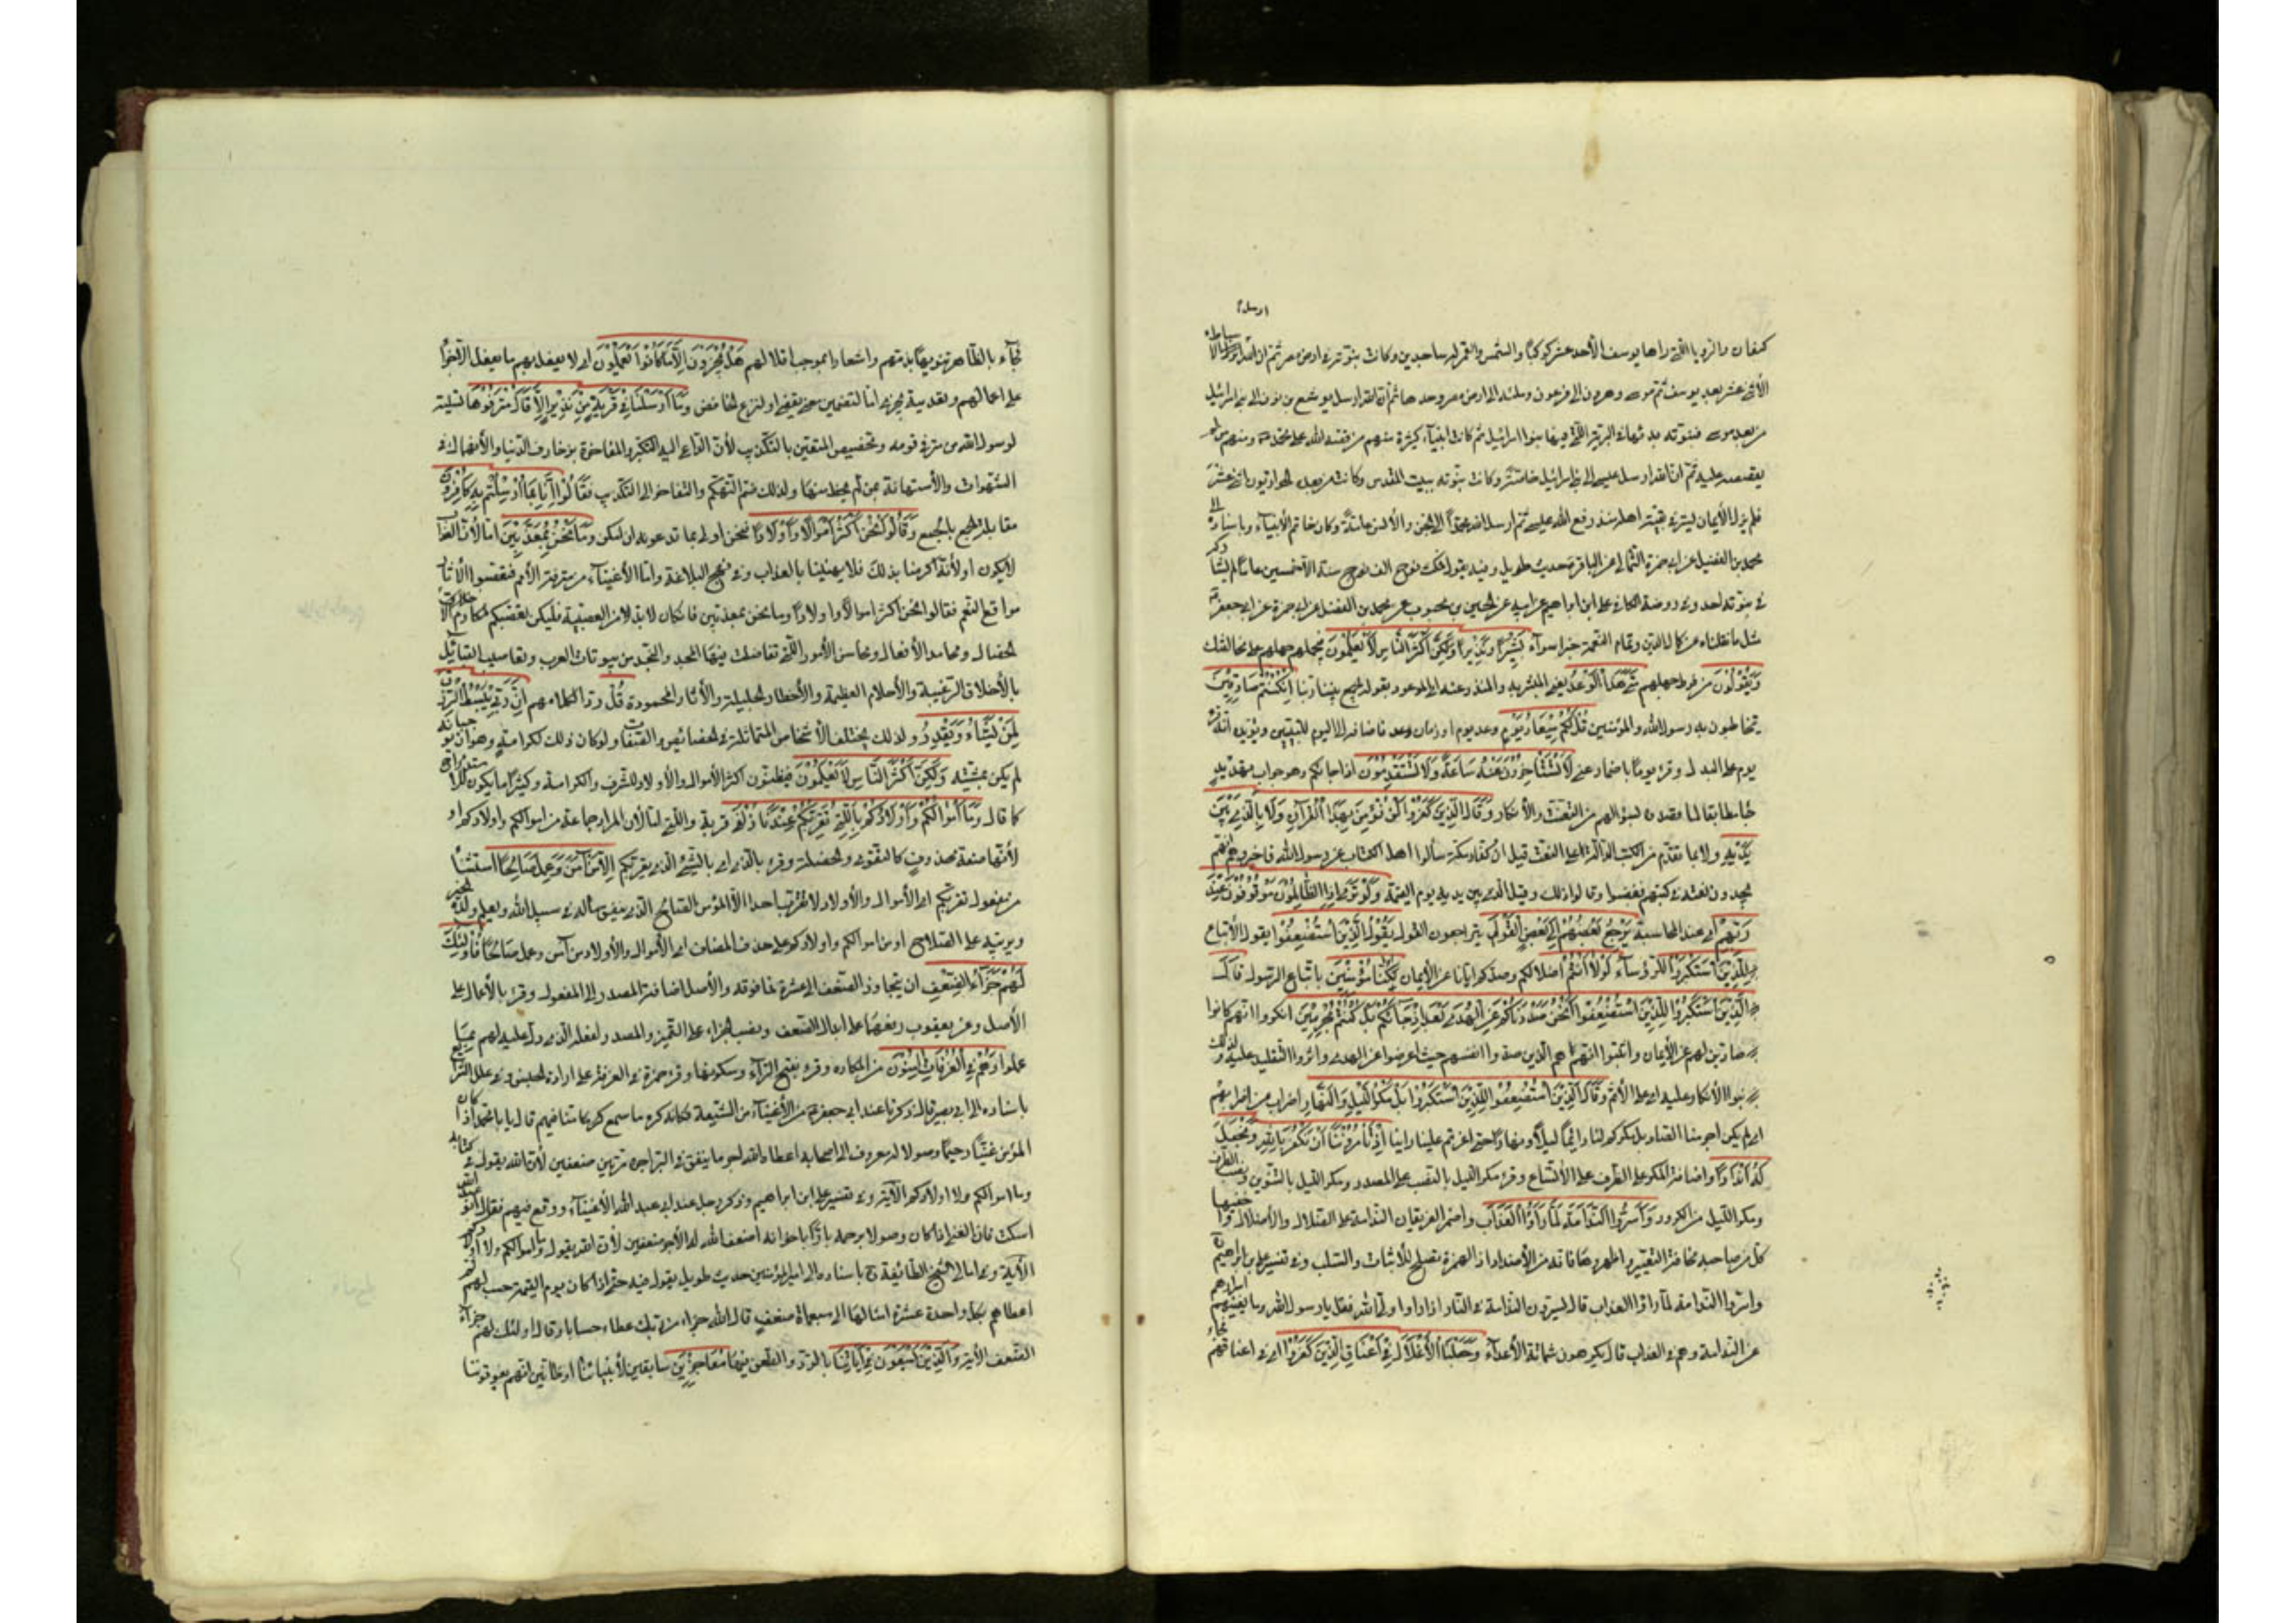 ارسل
كنعان والرؤيا التي راها يوسف الأحد عشر كوكبا والشمس والقمر له ساجدين وكانت نبوته في ارض مصر ثم ان الله ارسل الأسباط
الأثنى عشر بعد يوسف ثم موسى وهرون الى فرعون وملئه الى ارض مصر وحدها ثم ان الله ارسل يوشع بن نون الى بني اسرائيل
من بعد موسى فنبوته بدئها في البرية التي فيها بنوا اسرائيل ثم كانت انبياء كثيرة منهم من قصه الله على محمد ومنهم من لم
يقصصه عليه ثم ان الله ارسل عيسى الى بني اسرائيل خاصة وكانت نبوته ببيت المقدس وكانت من بعده الحواريون اثنى عشر
فلم يزل الأيمان يستر في بقية اهله منذ رفع الله عيسى ثم ارسل الله محمدا الى الجن والأنس عامة وكان خاتم الأنبياء وباسناده الى
محمد بن الفضيل عن ابي حمزة الثمالي عن الباقر حديث طويل وفيه يقول فمكث نوح الف نوح سنة الا خمسين عاما لم يشاركه
في نبوته احد وفي روضة الكافي علي بن ابراهيم عن ابيه عن الحسن بن محبوب عن محمد بن الفضيل عن ابي حمزة عن ابي جعفر
مثل ما نقلناه عن كمال الدين وتمام النعمة خبرا سواء بَشِيرًا وَنَذِيرًا وَلَكِنَّ أَكْثَرَ النَّاسِ لَا يَعْلَمُونَ فيحملهم جهلهم على مخالفتك
وَيَقُولُونَ من فرط جهلهم مَتَى هَذَا الْوَعْدُ يعني المبشر به والمنذر عنه او الموعود بقوله يجمع بيننا ربنا إِنْ كُنْتُمْ صَادِقِينَ
يخاطبون به رسول الله والمؤمنين قُلْ لَكُمْ مِيعَادُ يَوْمٍ وعد يوم او زمان وعد فاضافه الى اليوم للتبيين ويؤيده انه قرئ
يوم على البدل وقرئ يوما باضمار عني لَا تَسْتَأْخِرُونَ عَنْهُ سَاعَةً وَلَا تَسْتَقْدِمُونَ اذا جاءكم وهو جواب تهديد
جاء مطابقا لما قصدوه بسؤالهم من التعنت والأنكار وَقَالَ الَّذِينَ كَفَرُوا لَنْ نُؤْمِنَ بِهَذَا الْقُرْآنِ وَلَا بِالَّذِي بَيْنَ
يَدَيْهِ ولا بما تقدمه من الكتب الدالة على النعت قيل ان كفار مكة سألوا اهل الكتاب عن رسول الله فاخبروهم انهم
يجدون نعته في كتبهم فغضبوا وقالوا ذلك وقيل الذي بين يديه يوم القيمة وَلَوْ تَرَى إِذِ الظَّالِمُونَ مَوْقُوفُونَ عِنْدَ
رَبِّهِمْ اى عند المحاسبة يَرْجِعُ بَعْضُهُمْ إِلَى بَعْضٍ الْقَوْلَ يتراجعون القول يَقُولُ الَّذِينَ اسْتُضْعِفُوا يقول الأتباع
لِلَّذِينَ اسْتَكْبَرُوا للرؤساء لَوْلَا أَنْتُمْ اضلالكم وصدكم ايانا عن الأيمان لَكُنَّا مُؤْمِنِينَ باتباع الرسول قَالَ
الَّذِينَ اسْتَكْبَرُوا لِلَّذِينَ اسْتُضْعِفُوا أَنَحْنُ صَدَدْنَاكُمْ عَنِ الْهُدَى بَعْدَ إِذْ جَاءَكُمْ بَلْ كُنْتُمْ مُجْرِمِينَ انكروا انهم كانوا
صادين لهم عن الأيمان واثبتوا انهم هم الذين صدوا انفسهم حيث اعرضوا عن الهدى واثروا التقليد عليه ولذلك
بنوا الأنكار عليه على الأسم وَقَالَ الَّذِينَ اسْتُضْعِفُوا لِلَّذِينَ اسْتَكْبَرُوا بَلْ مَكْرُ اللَّيْلِ وَالنَّهَارِ اضراب عن اضرابهم
اى لم يكن اجرامنا الصاد بل مكركم لنا دائبا ليلا ونهارا حتى اغرتم علينا راينا إِذْ تَأْمُرُونَنَا أَنْ نَكْفُرَ بِاللَّهِ وَنَجْعَلَ
لَهُ أَنْدَادًا واضافة المكر على الظرف على الأتساع وقرئ مكر الليل بالنصب على المصدر ومكر الليل بالتنوين ونصب الظرف
ومكر الليل من الكرور وَأَسَرُّوا النَّدَامَةَ لَمَّا رَأَوُا الْعَذَابَ واضمر الفريقان الندامة على الضلال والأضلال واخفيها
كل من صاحبه مخافة التعيير او اظهروها فانه من الأضداد اذ الهمزة تصلح للأثبات والسلب وفي تفسير علي بن ابراهيم
واسروا الندامة لما راوا العذاب قال يسرون الندامة في النار اذا راوا ولي الله فقيل يابن رسول الله وما يغنيهم اسرارهم
عن الندامة وهم في العذاب قال يكرهون شماتة الأعداء وَجَعَلْنَا الْأَغْلَالَ فِي أَعْنَاقِ الَّذِينَ كَفَرُوا اى في اعناقهم
فجاء بالظاهر تنويها بذمهم واشعارا بموجب اغلالهم هَلْ يُجْزَوْنَ إِلَّا مَا كَانُوا يَعْمَلُونَ اى لا يفعل بهم ما يفعل الا جزاء
على اعمالهم وتعدية يجزى اما لتضمين معنى يقضى او لنزع الخافض وَمَا أَرْسَلْنَا فِي قَرْيَةٍ مِنْ نَذِيرٍ إِلَّا قَالَ مُتْرَفُوهَا تسلية
لرسول الله من قومه وتخصيص المتنعمين بالتكذيب لأن الداعي اليه التكبر والمفاخرة بزخارف الدنيا والأنهماك في
الشهوات والأستهانة بمن لم يحظ منها ولذلك ضم التهكم والتفاخر الى التكذيب فقالوا إِنَّا بِمَا أُرْسِلْتُمْ بِهِ كَافِرُونَ
مقابلة الجمع بالجمع وَقَالُوا نَحْنُ أَكْثَرُ أَمْوَالًا وَأَوْلَادًا فنحن اولى بما تدعونه ان امكن وَمَا نَحْنُ بِمُعَذَّبِينَ اما لأن العذاب
لا يكون او لأنه اكرمنا بذلك فلا يهيننا بالعذاب وفي نهج البلاغة واما الأغنياء من مترفة الأمم فتعصبوا لأثار
مواقع النعم فقالوا نحن اكثر اموالا واولادا وما نحن بمعذبين فان كان لابد من العصبية فليكن تعصبكم لمكارم
الخصال ومحامد الأفعال ومحاسن الأمور التي تفاضلت فيها المجد والنجد من بيوتات العرب ويعاسيب القبائل
بالأخلاق الرغيبة والأحلام العظيمة والأخطار الجليلة والأثار المحمودة قُلْ ردا لكلامهم إِنَّ رَبِّي يَبْسُطُ الرِّزْقَ
لِمَنْ يَشَاءُ وَيَقْدِرُ ولذلك يختلف الأشخاص المتماثلة في الخصائص والصفات ولو كان ذلك لكرامة وهوان يوجبانه
لم يكن بمشيته وَلَكِنَّ أَكْثَرَ النَّاسِ لَا يَعْلَمُونَ فيظنون اكثر الأموال والأولاد للشرف والكرامة وكثيرا ما يكون للاستدراج
كما قال وَمَا أَمْوَالُكُمْ وَلَا أَوْلَادُكُمْ بِالَّتِي تُقَرِّبُكُمْ عِنْدَنَا زُلْفَى قربة والتي اما لأن المراد جماعة من اموالكم واولادكم او
لأنها صفة محذوف كالتقوى والخصلة وقرئ بالذي اى بالشئ الذي يقربكم إِلَّا مَنْ آمَنَ وَعَمِلَ صَالِحًا استثناء
من مفعول تقربكم اى الأموال والأولاد لا تقرب احدا الا المؤمن الصالح الذي ينفق ماله في سبيل الله ويعلم ولده الخير
ويربيه على الصلاح او من اموالكم واولادكم على حذف المضاف اى الا اموال والأولاد من آمن وعمل صالحا فَأُولَئِكَ
لَهُمْ جَزَاءُ الضِّعْفِ ان يجازوا الضعف الى عشرة فما فوقه والأصل اضافة المصدر الى المفعول وقرئ بالأعمال على
الأصل وعن يعقوب رفعهما على ابدال الضعف ونصب الجزاء على التمييز والمصدر لفعله الذي دل عليه لهم بِمَا
عملوا وَهُمْ فِي الْغُرُفَاتِ آمِنُونَ من المكاره وقرئ بفتح الراء وسكونها وقرء حمزة في الغرفة على ارادة الجنس وفي علل الشرايع
باسناده الى ابي بصير قال ذكرنا عند ابي جعفر من الأغنياء من الشيعة فكانه كره ما سمع منا فيهم قال يابا محمد اذا كان
المؤمن غنيا رحيما وصولا له معروف الى اصحابه اعطاه الله اجر ما ينفق في البر اجره مرتين ضعفين لأن الله يقول في كتابه
وما اموالكم ولا اولادكم الآية وفي تفسير علي بن ابراهيم وذكر رجل عند ابي عبد الله الأغنياء ووقع فيهم فقال ابو عبد الله
اسكت فان الغني اذا كان وصولا برحمه بارا باخوانه اضعف الله له الأجر ضعفين لأن الله يقول وما اموالكم ولا اولادكم
الآية وفي امالي شيخ الطائفة باسناده الى امير المؤمنين حديث طويل يقول فيه حتى اذا كان يوم القيمة حسب لهم
اعطاهم بكل واحدة عشرة امثالها الى سبعمأة ضعف قال الله جزاء من ربك عطاء حسابا وقال اولئك لهم جزاء
الضعف الأية وَالَّذِينَ يَسْعَوْنَ فِي آيَاتِنَا بالرد والطعن فيها مُعَاجِزِينَ سابقين لأنبيائنا او ظانين انهم يفوتوننا